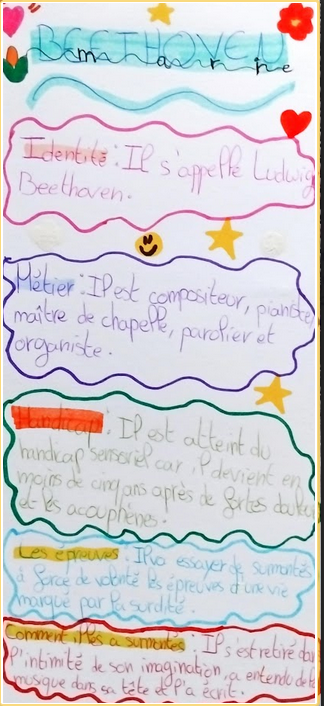 BEETHOVEN
marine
Identité : Il s'appelle Ludwig
Beethoven.
Métier : Il est compositeur, pianiste,
maître de chapelle, parolier et
organiste.
Handicap : Il est atteint du
handicap sensoriel car il devient en
moins de cinq ans après de fortes douleu
et les acouphènes.
Les épreuves : Il va essayer de surmontés
à force de volonté les épreuves d'une vie
marqué par la surdité.
Comment il les a surmontés : Il s'est retiré dan
l'intimité de son imagination, a entendu de l
musique dans sa tête et l'a écrit.